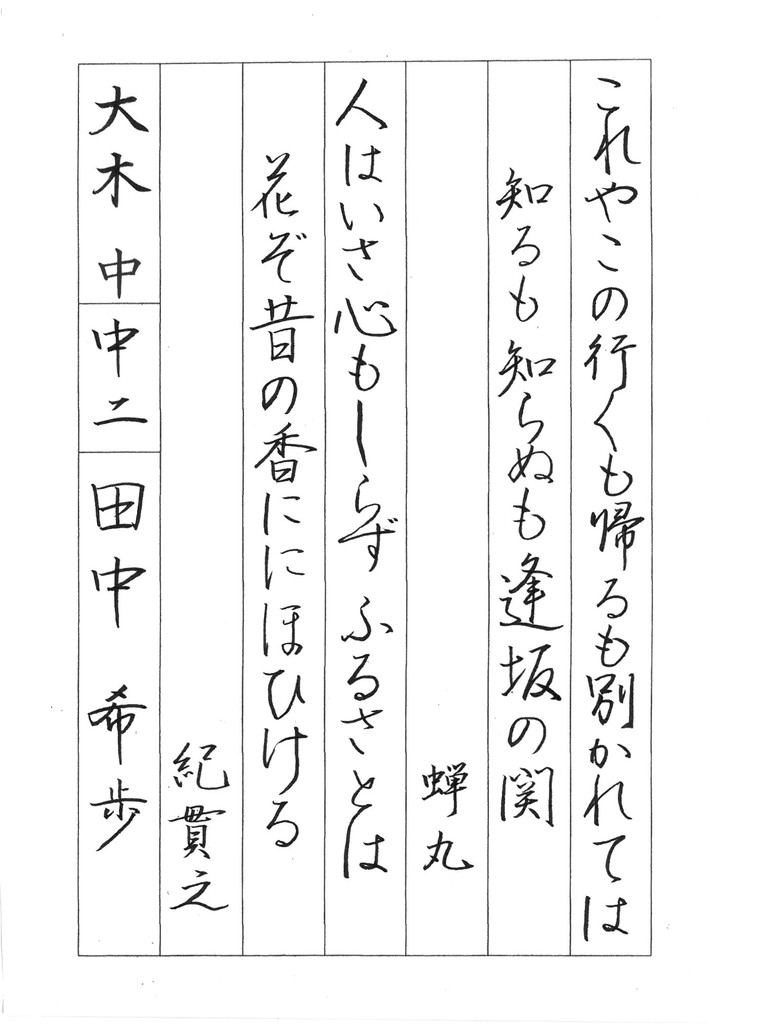 これやこの行くも帰るも別かれては
知るも知らぬも逢坂の関
蝉丸
人はいさ心もしらずふるさとは
花ぞ昔の香ににほひける
紀貫之
大木中 中二 田中 希歩